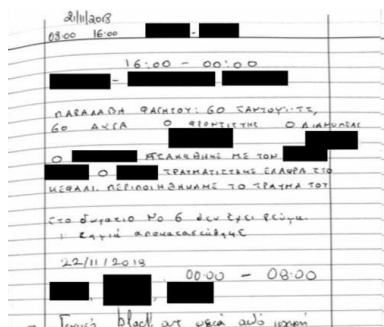 21/11/2018
08:00 16:00 -
16:00 - 00:00
-
ΠΑΡΑΛΑΒΑ ΦΑΓΗΤΟΥ: 60 ΣΑΝΤΟΥΙΤΣ,
60 ΑΥΓΑ Ο ΦΡΟΝΤΙΣΤΗΣ Ο ΔΙΑΝΟΜΕΑΣ
Ο ΜΕ ΤΟΝ
Ο ΤΡΑΥΜΑΤΙΣΤΗΚΕ ΕΛΑΦΡΑ ΣΤΟ
ΚΕΦΑΛΙ. ΠΕΡΙΠΟΙΗΘΗΚΑΜΕ ΤΟ ΤΡΑΥΜΑ ΤΟΥ
Στο δωματιο Νο 6 δεν εχει ρευμα.
αποκατασταθηκε
22/11/2018
00:00 - 08:00
black out μετά από